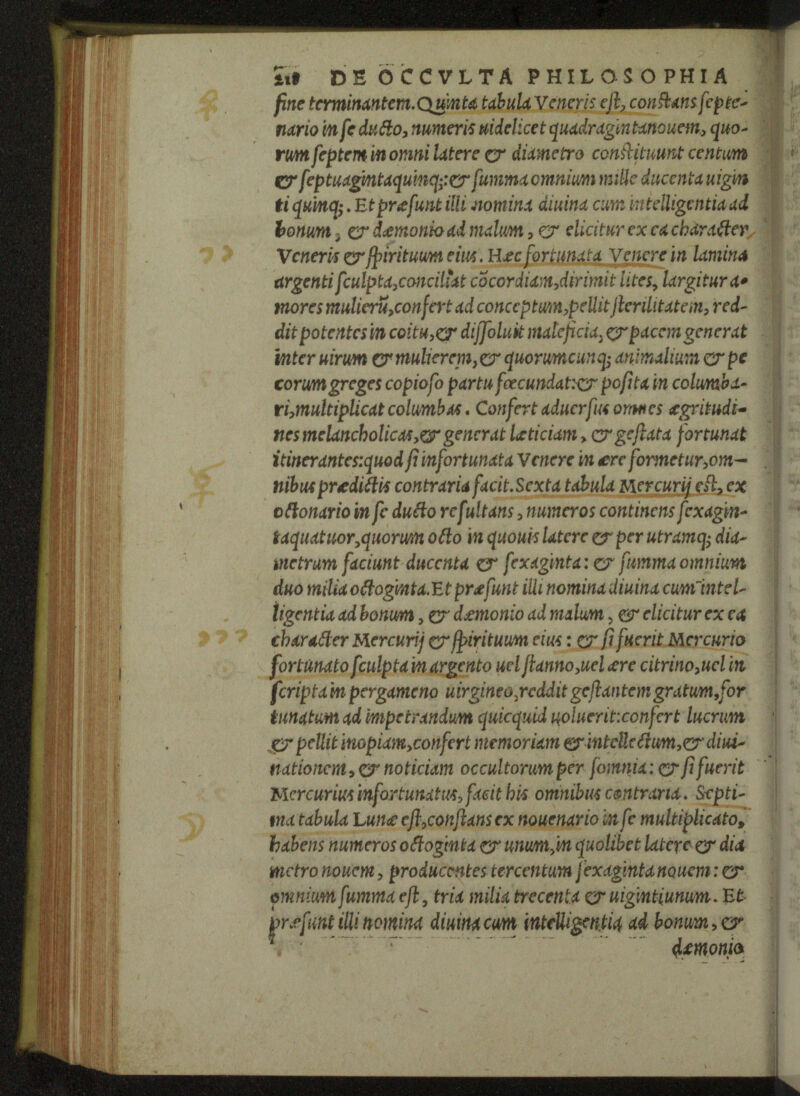 DE OCCVLTA PHILOSOPHIA
fine terminantem. Quinta tabula Veneris eſt, conſtans ſepte-
nario in ſe ducto, numeris uidelicet quadragintanouem, quo-
rum ſeptem in omni latere & diametro conſtituunt centum
& ſeptuagintaquinq;: & ſumma omnium mille ducenta uigin
ti quinq;. Et præſunt illi nomina diuina cum intelligentia ad
bonum, & dæmonio ad malum, & elicitur ex ea character
Veneris & ſpirituum eius. Hæc fortunata Venere in lamina
argenti ſculpta, conciliat cōcordiam, dirimit lites, largitur a-
mores mulierū, confert ad conceptum, pellit ſterilitatem, red-
dit potentes in coitu, & diſſoluit maleficia, & pacem generat
inter uirum & mulierem, & quorumcunq; animalium & pe
corum greges copioſo partu fœcundat: & poſita in columba-
ri, multiplicat columbas. Confert aduerſus omnes ægritudi-
nes melancholicas, & generat læticiam, & geſtata fortunat
itinerantes: quod ſi infortunata Venere in ære formetur, om-
nibus prædictis contraria facit. Sexta tabula Mercurij eſt, ex
octonario in ſe ducto reſultans, numeros continens ſexagin-
taquatuor, quorum octo in quouis latere & per utramq; dia-
metrum faciunt ducenta & ſexaginta: & ſumma omnium
duo milia octoginta. Et præſunt illi nomina diuina cum intel-
ligentia ad bonum, & dæmonio ad malum, & elicitur ex ea
character Mercurij & ſpirituum eius: & ſi fuerit Mercurio
fortunato ſculpta in argento uel ſtanno, uel ære citrino, uel in
ſcripta in pergameno uirgineo, reddit geſtantem gratum, for
tunatum ad impetrandum quicquid uoluerit: confert lucrum
& pellit inopiam, confert memoriam & intellectum, & diui-
nationem, & noticiam occultorum per ſomnia: & ſi fuerit
Mercurius infortunatus, facit his omnibus contraria. Septi-
ma tabula Lunæ eſt, conſtans ex nouenario in ſe multiplicato,
habens numeros octoginta & unum, in quolibet latere & dia
metro nouem, producentes tercentum ſexagintanouem: &
omnium ſumma eſt, tria milia trecenta & uigintiunum. Et
præſunt illi nomina diuina cum intelligentia ad bonum, &
dæmonio